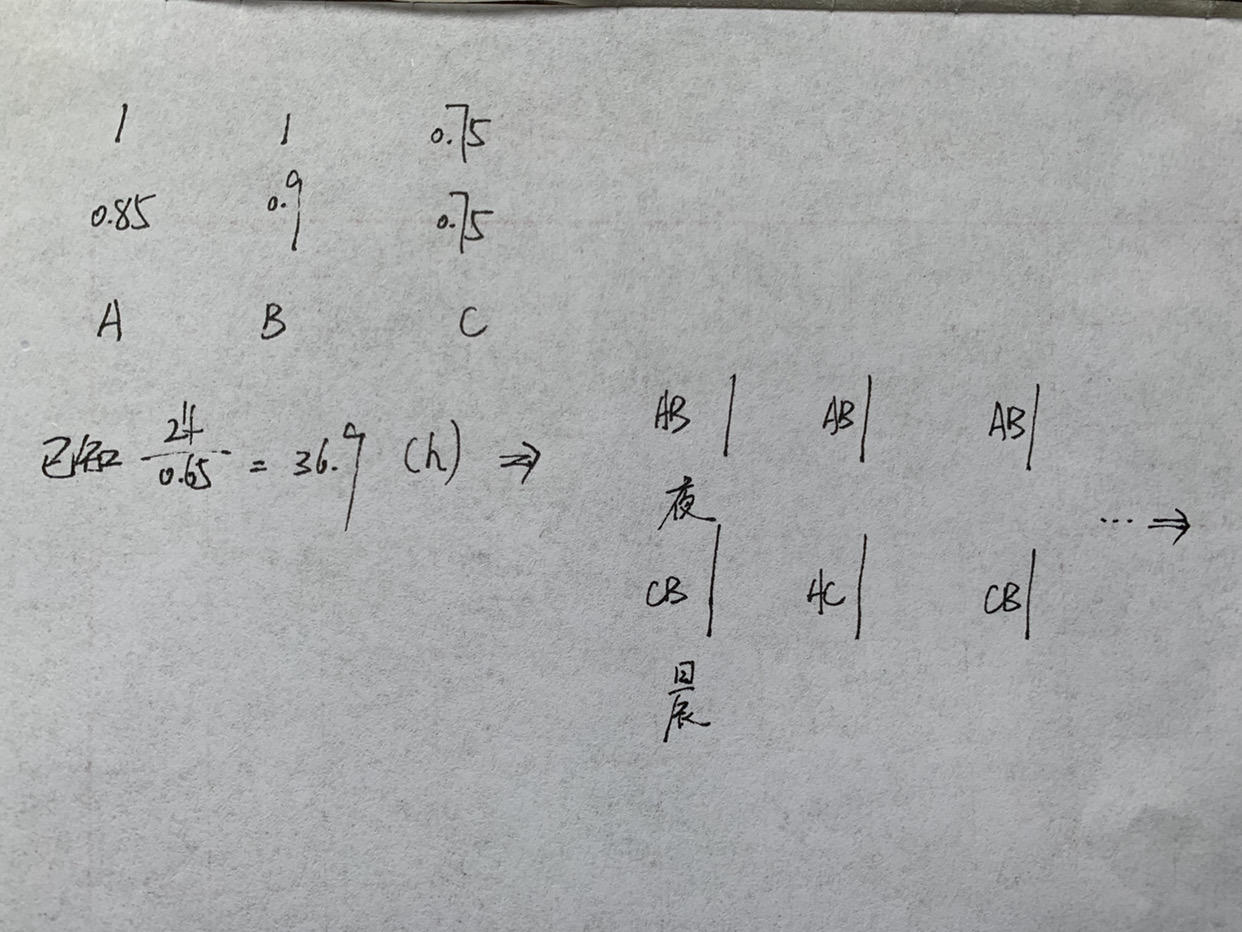 1 1 0.75
0.85 0.9 0.75
A B C
AB | AB | AB |
已知 24/0.65 = 36.9 (h) ⇒
夜
... ⇒
CB | AC | CB |
晨